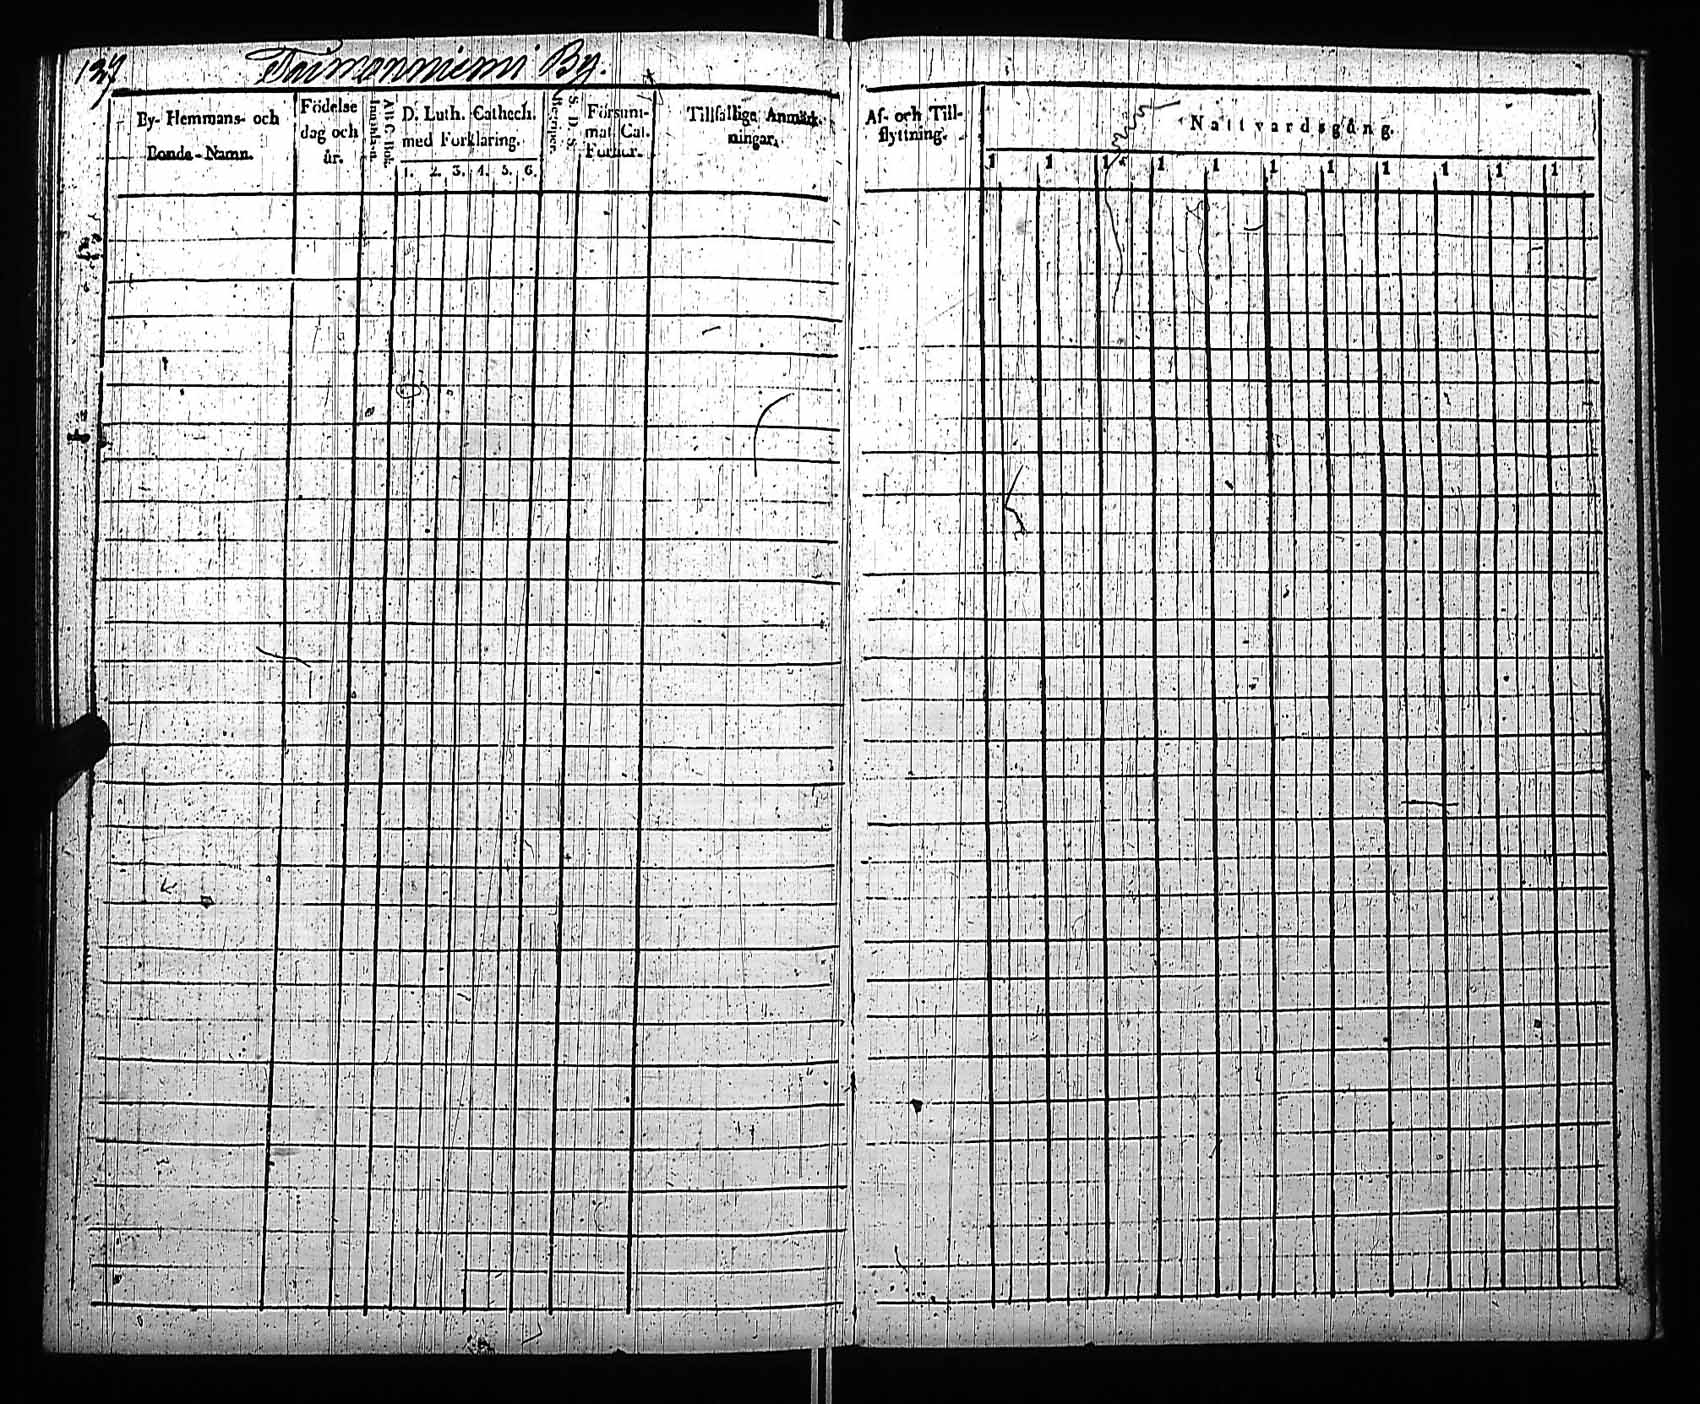 137 Taimonniemi By.
By- Hemmans- och
Bonde-Namn.
Födelse
dag och
år.
Innanläsn.
A B C Bok.
D. Luth. Cathech.
med Forklaring.
1. 2. 3. 4. 5. 6.
S. D. S.
Försum-
mat Cat.
Förhör.
Tillfällige Anmärk-
ningar.
Af- och Till-
flyttning.
Nattvardsgång.
1 1 1 1 1 1 1 1 1 1 1